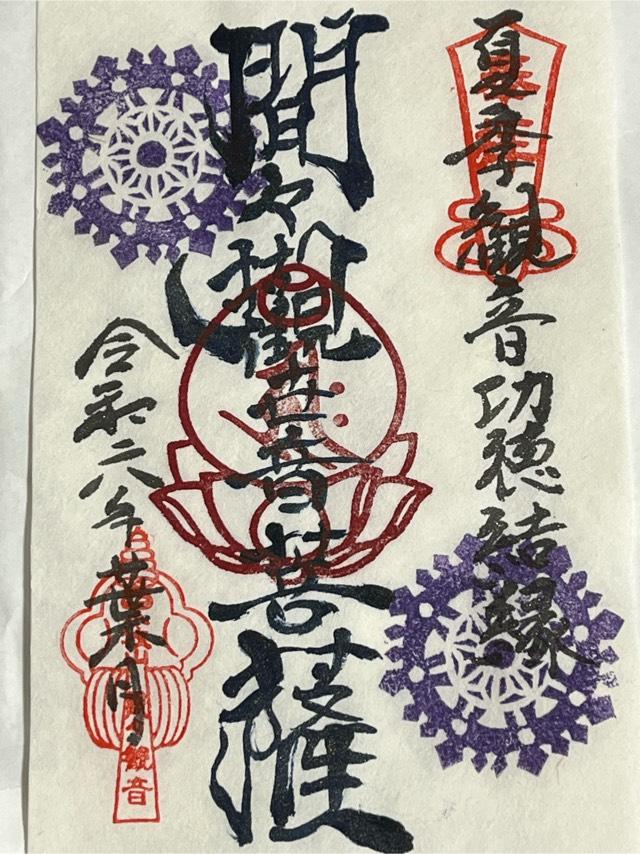 夏季観音功徳結縁
間々觀世音菩薩
令和六年葉月
観音